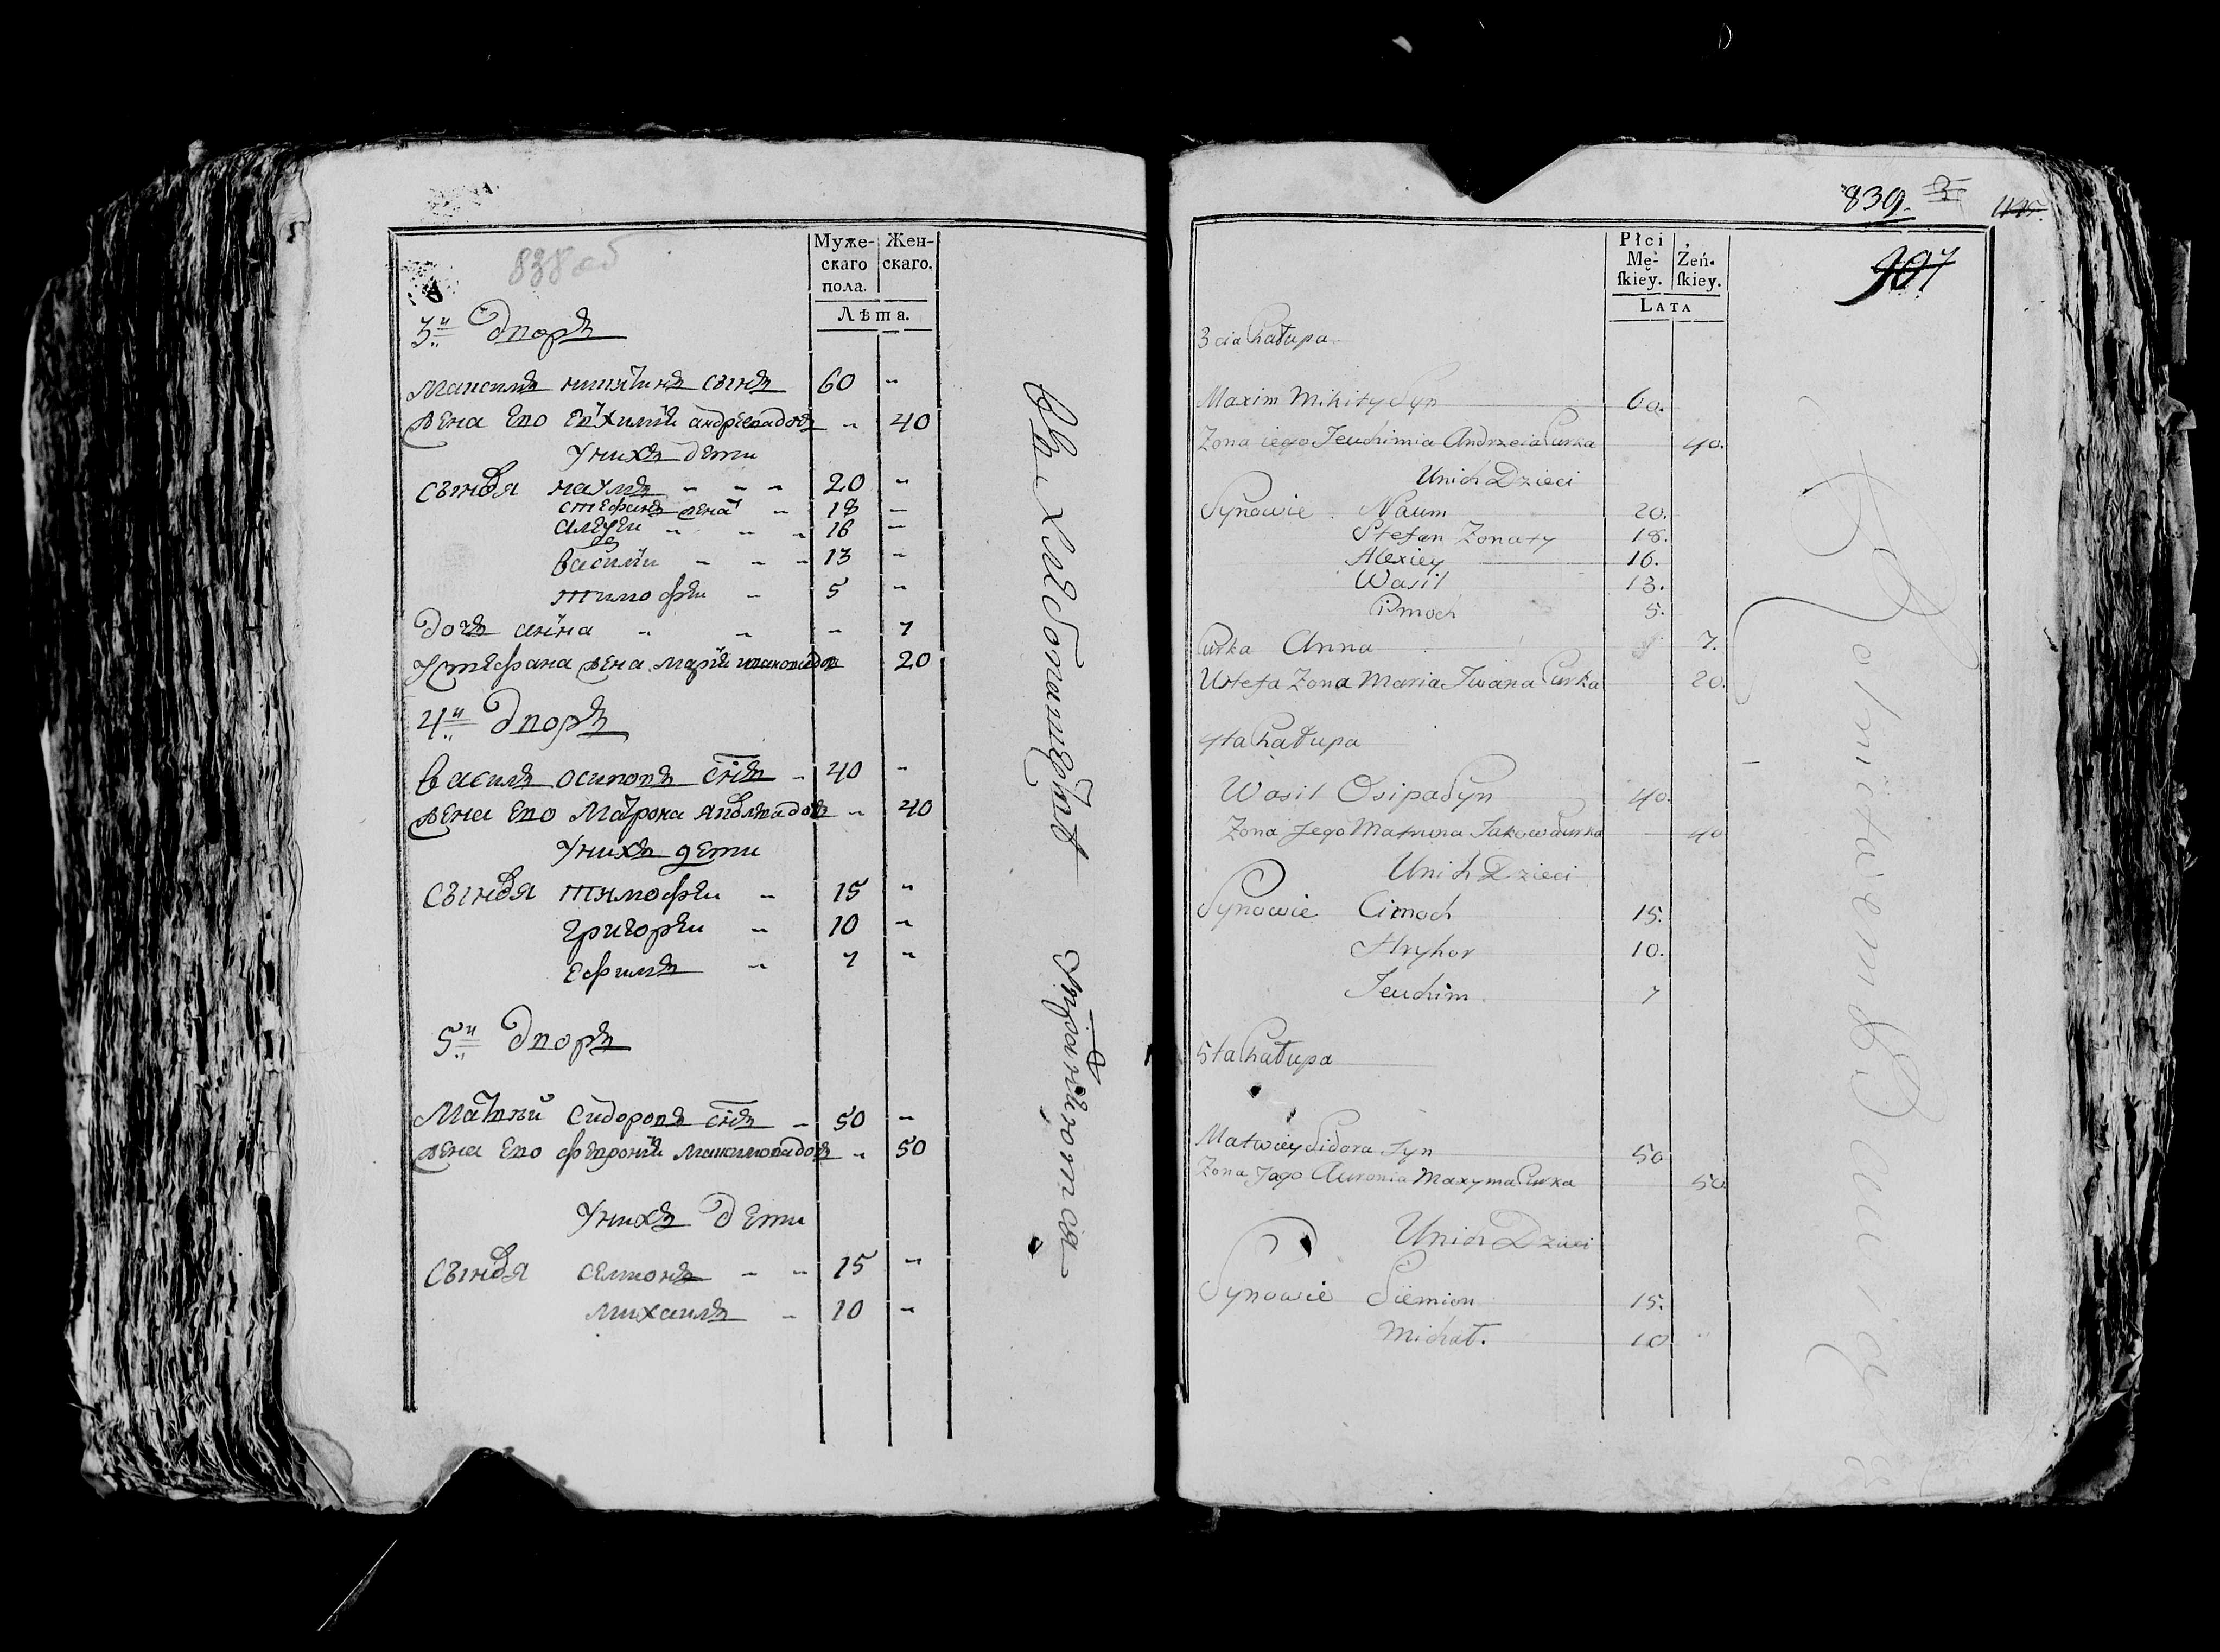 838 об
Муже-
скаго
пола.
Жен-
скаго.
Лѣта.
3й дворъ
Максимъ никитинъ сынъ 60 "
жена Ево Евхимія андрѣева дочь " 40
У нихъ дети
сыновя наумъ " " " 20 "
стефанъ жена " 18 "
алеѯеи " " " 16 "
василіи " " " 13 "
тимофеи " 5 "
дочь анна " " " 7
У стефана жена марія иванова дочь 20
4й дворъ
василь осиповъ снъ " 40 "
жена Ево Матрона яковлева дочь " 40
У нихъ дети
сыновя тимофеи " 15 "
григореи " 10 "
ефимъ " 7 "
5й дворъ
Матвѣй сидоровъ снъ " 50 "
жена Ево февронія максимова дочь " 50
У нихъ дети
сыновя семионъ " " 15 "
михаилъ " 10 "
въ хлебопашестве упражняются
839.
907
Płci
Mę-
skiey.
Żeń-
skiey.
LATA
3cia Chałupa
Maxim Mikity Syn 60.
Zona iego Jeuchimia Andrzeia Curka 40.
Unich Dzieci
Synowie Naum 20.
Stefan Zonaty 18.
Alexiey 16.
Wasil 13.
Cimoch 5.
Curka Anna 7.
Ustefa Zona Maria Iwana Curka 20.
4ta Chałupa
Wasil Osipa Syn 40.
Zona Jego Matruna Jakowa Curka 40
Unich Dzieci
Synowie Cimoch 15.
Hryhor 10.
Jeuchim 7
5ta Chałupa
Matwiey Sidora Syn 50
Zona Jego Auronia Maxyma Curka 50
Unich Dzieci
Synowie Siemion 15.
Michał. 10